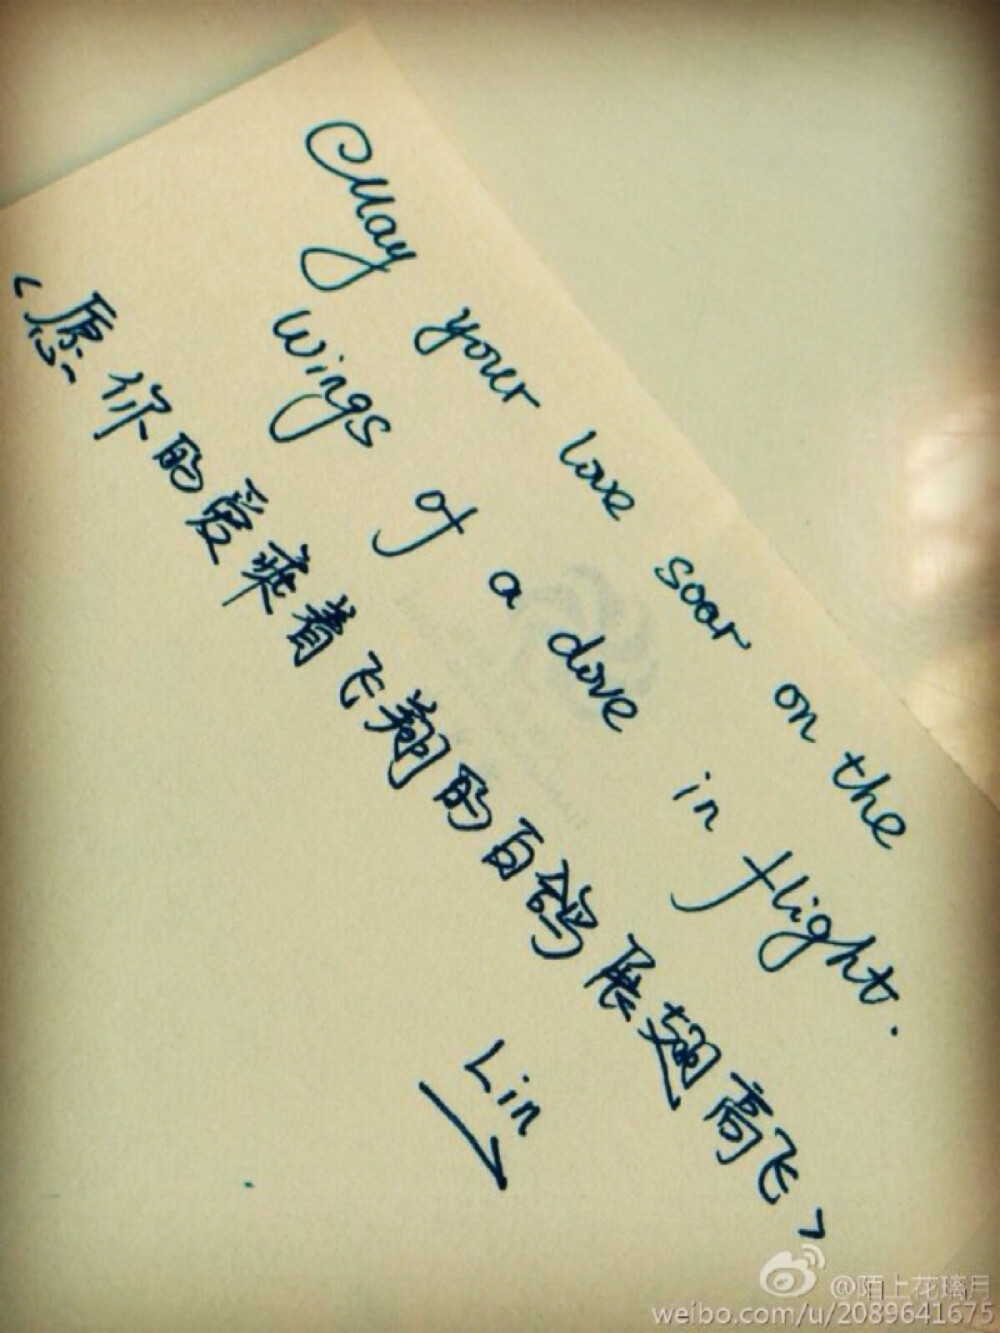 May your love soar on the
wings of a dove in flight.
<愿你的爱乘着飞翔的白鸽展翅高飞>
Lin
@陌上花璃月
weibo.com/u/2089641675